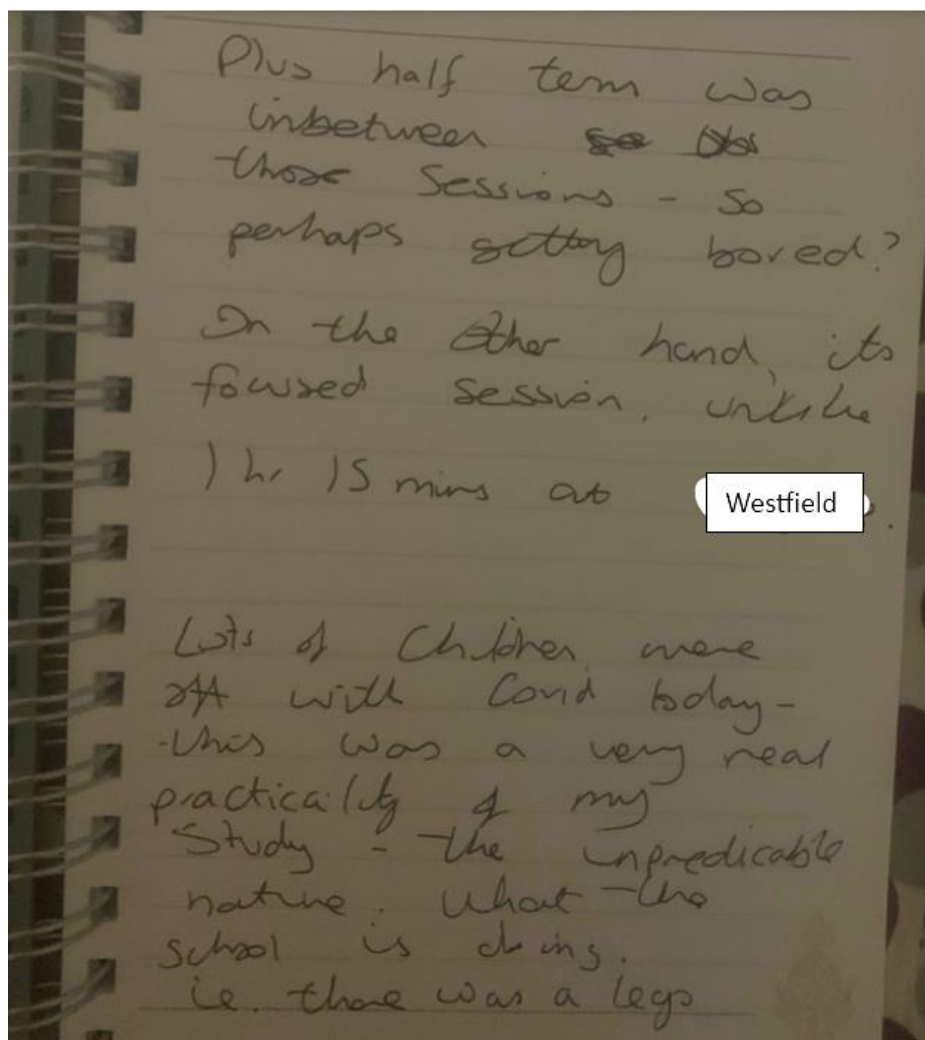 Plus half term was
inbetween
those sessions - so
perhaps getting bored?
On the other hand, its
focused session, unlike
1 hr 15 mins at Westfield.
Lots of Children were
off with Covid today -
this was a very real
practicality of my
Study - the unpredicable
nature. What the
school is doing.
ie. there was a lego